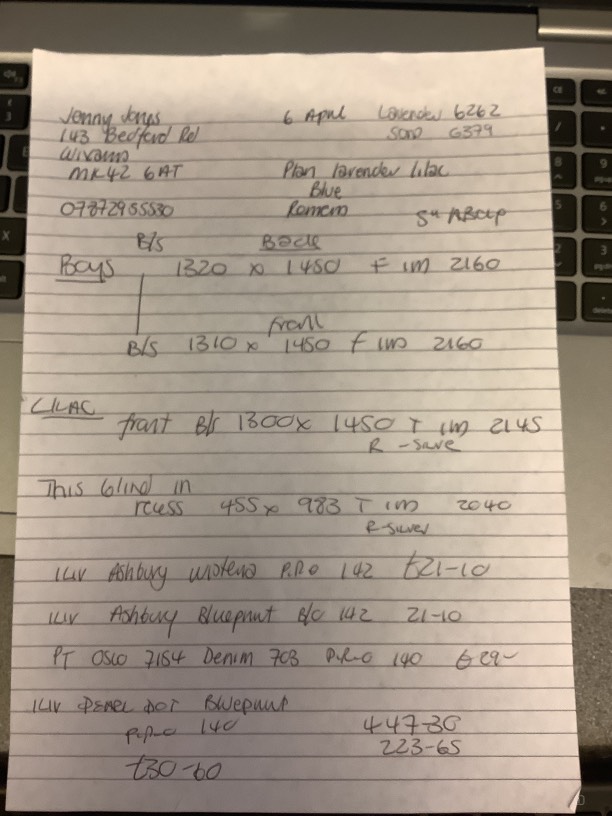 Jenny Jones 6 April Lavender 6262
143 Bedford Rd Sono 6379
Wixams
MK42 6AT Plan lavender lilac
Blue
07872955530 Romem
B/S Back
Boys 1320 x 1450 F 1m 2160
front
B/S 1310 x 1450 F 1m 2160
LILAC
front B/S 1300 x 1450 T 1m 2145
R-
This blind in
rcess 455 x 983 T 1m 2040
R-silver
ILIV Ashbury Wisteria P.R.O 142 £21-10
ILIV Ashbury Blueprint B/O 142 21-10
PT OSLO 7154 Denim 703 P.R-O 140 £29-
ILIV DOT Blueprint
P.R-O 140 447-30
223-65
£30-60